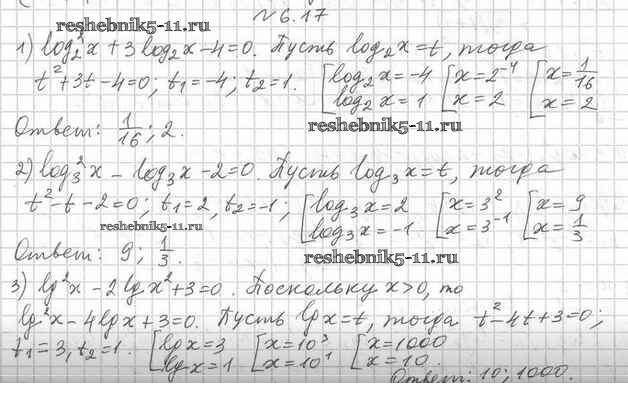 № 6.17
reshebnik5-11.ru
1) log₂²x + 3 log₂x - 4 = 0. Пусть log₂x = t, тогда
t² + 3t - 4 = 0; t₁ = -4; t₂ = 1. [log₂x = -4 [x = 2⁻⁴ [x = 1/16
log₂x = 1 x = 2 x = 2
Ответ: 1/16; 2.
reshebnik5-11.ru
2) log₃²x - log₃x - 2 = 0. Пусть log₃x = t, тогда
t² - t - 2 = 0; t₁ = 2, t₂ = -1; [log₃x = 2 [x = 3² [x = 9
log₃x = -1 x = 3⁻¹ x = 1/3
reshebnik5-11.ru
Ответ: 9; 1/3.
reshebnik5-11.ru
3) lg²x - 2 lg x² + 3 = 0. Поскольку x > 0, то
lg²x - 4 lg x + 3 = 0. Пусть lg x = t, тогда t² - 4t + 3 = 0;
t₁ = 3, t₂ = 1. [lg x = 3 [x = 10³ [x = 1000
lg x = 1 x = 10¹ x = 10.
Ответ: 10; 1000.